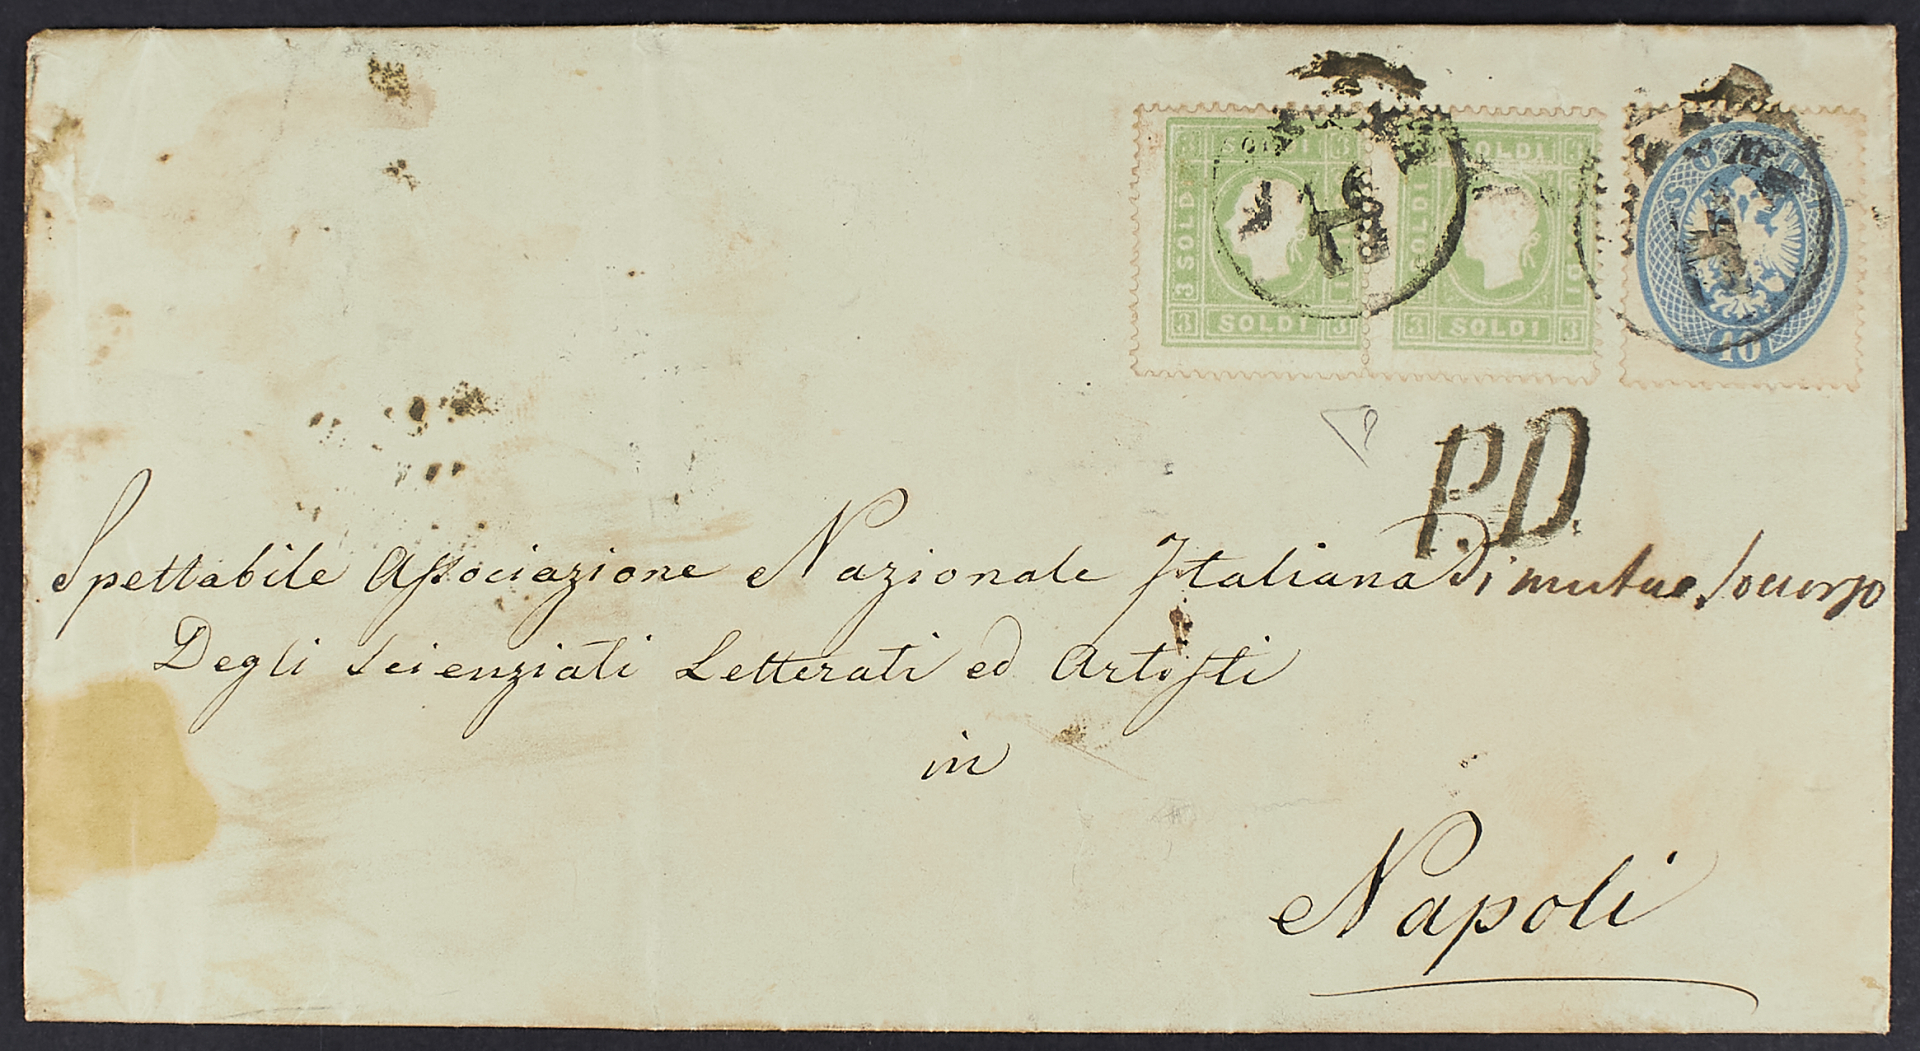 SOLDI SOLDI
3 3 3 3
3 SOLDI SOLDI
3 SOLDI 3 3 SOLDI 3
10
P.D.
Spettabile Associazione Nazionale Italiana Di mutuo Soccorso
Degli Scienziati Letterati ed Artisti
in
Napoli